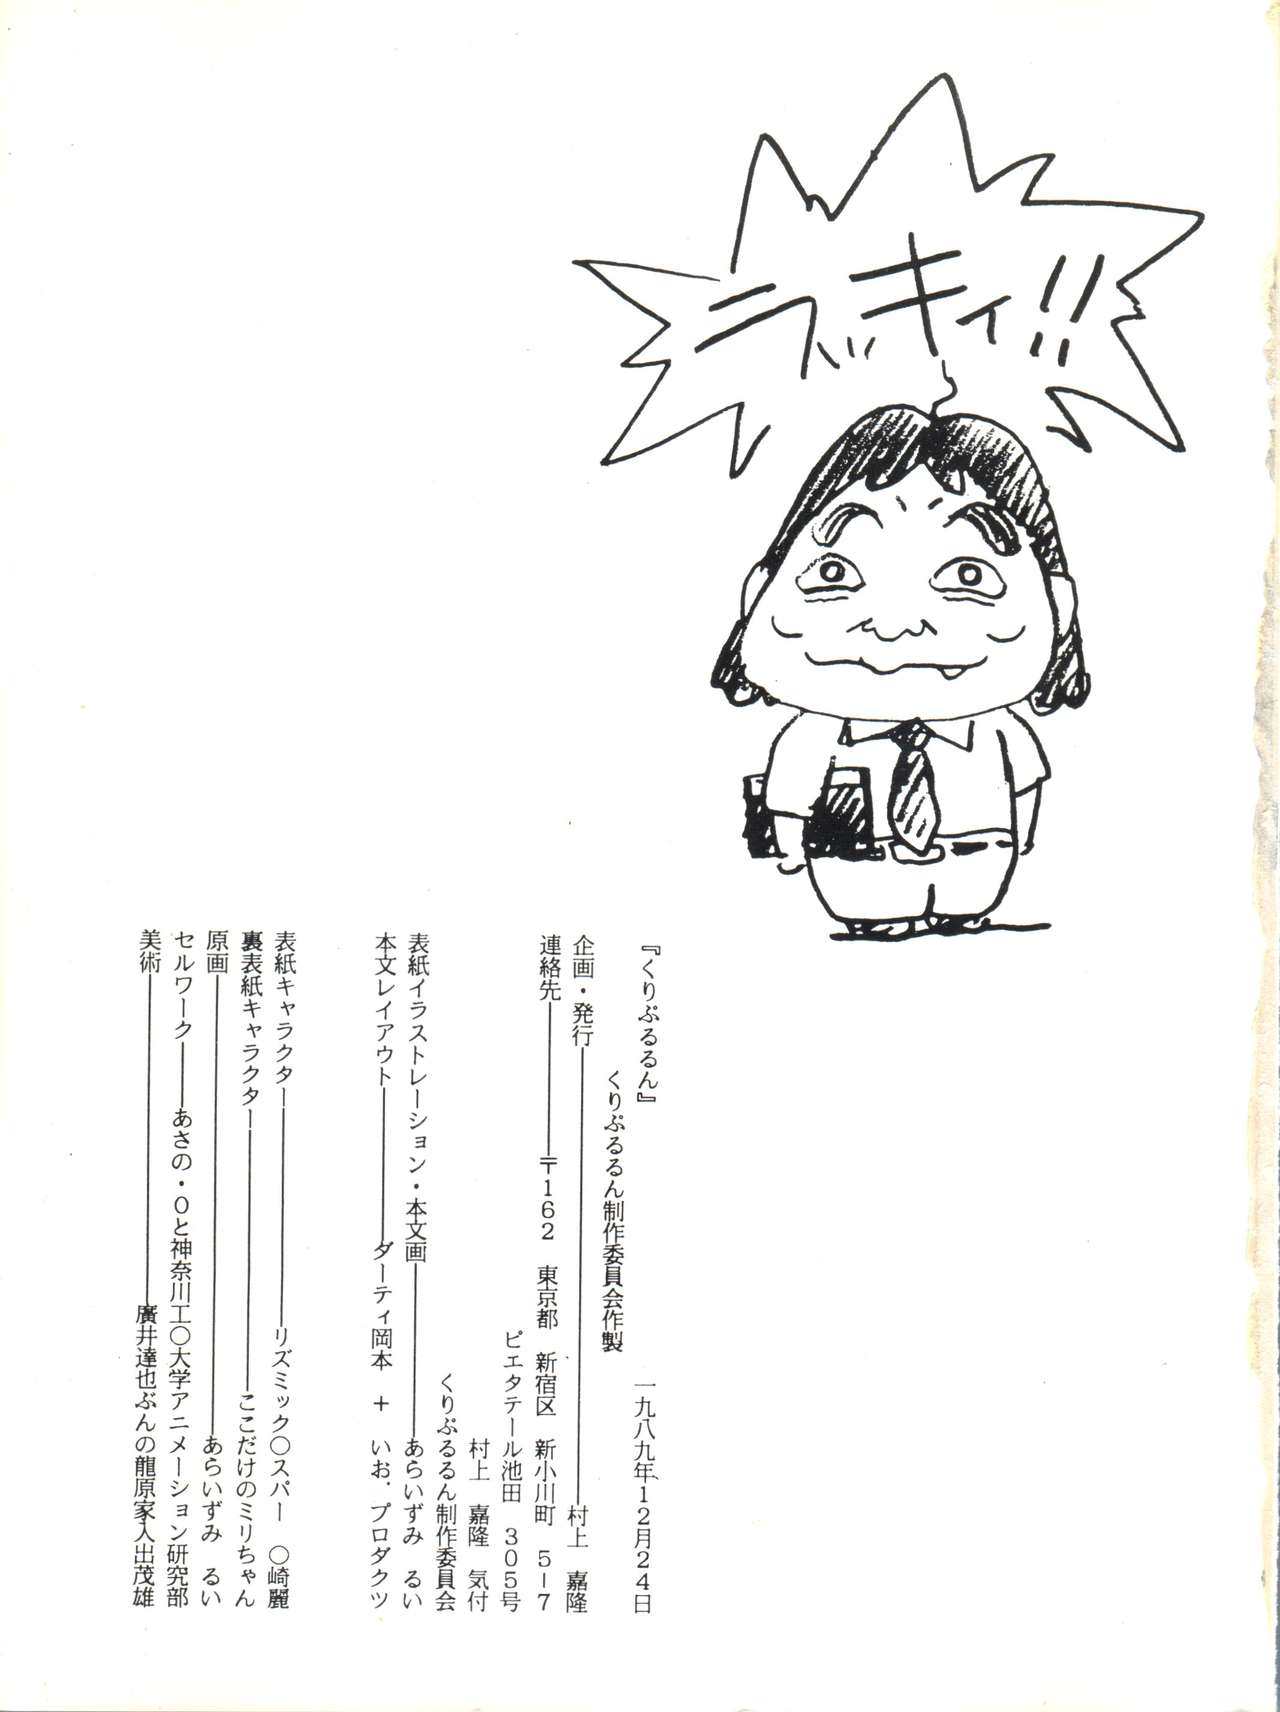 ラッキィ!!
『くりぷるるん』 一九八九年、12月24日
くりぷるるん制作委員会作製
企画・発行――村上 嘉隆
連絡先――〒162 東京都 新宿区 新小川町 5-7
ピエタテール池田 305号
村上 嘉隆 気付
くりぷるるん制作委員会
表紙イラストレーション・本文画――あらいずみ るい
本文レイアウト――ダーティ岡本 + いお.プロダクツ
表紙キャラクター――リズミック○スパー ○崎麗
裏表紙キャラクター――ここだけのミリちゃん
原画――あらいずみ るい
セルワーク――あさの・Oと神奈川工○大学アニメーション研究部
美術――廣井達也ぶんの龍原家人出茂雄